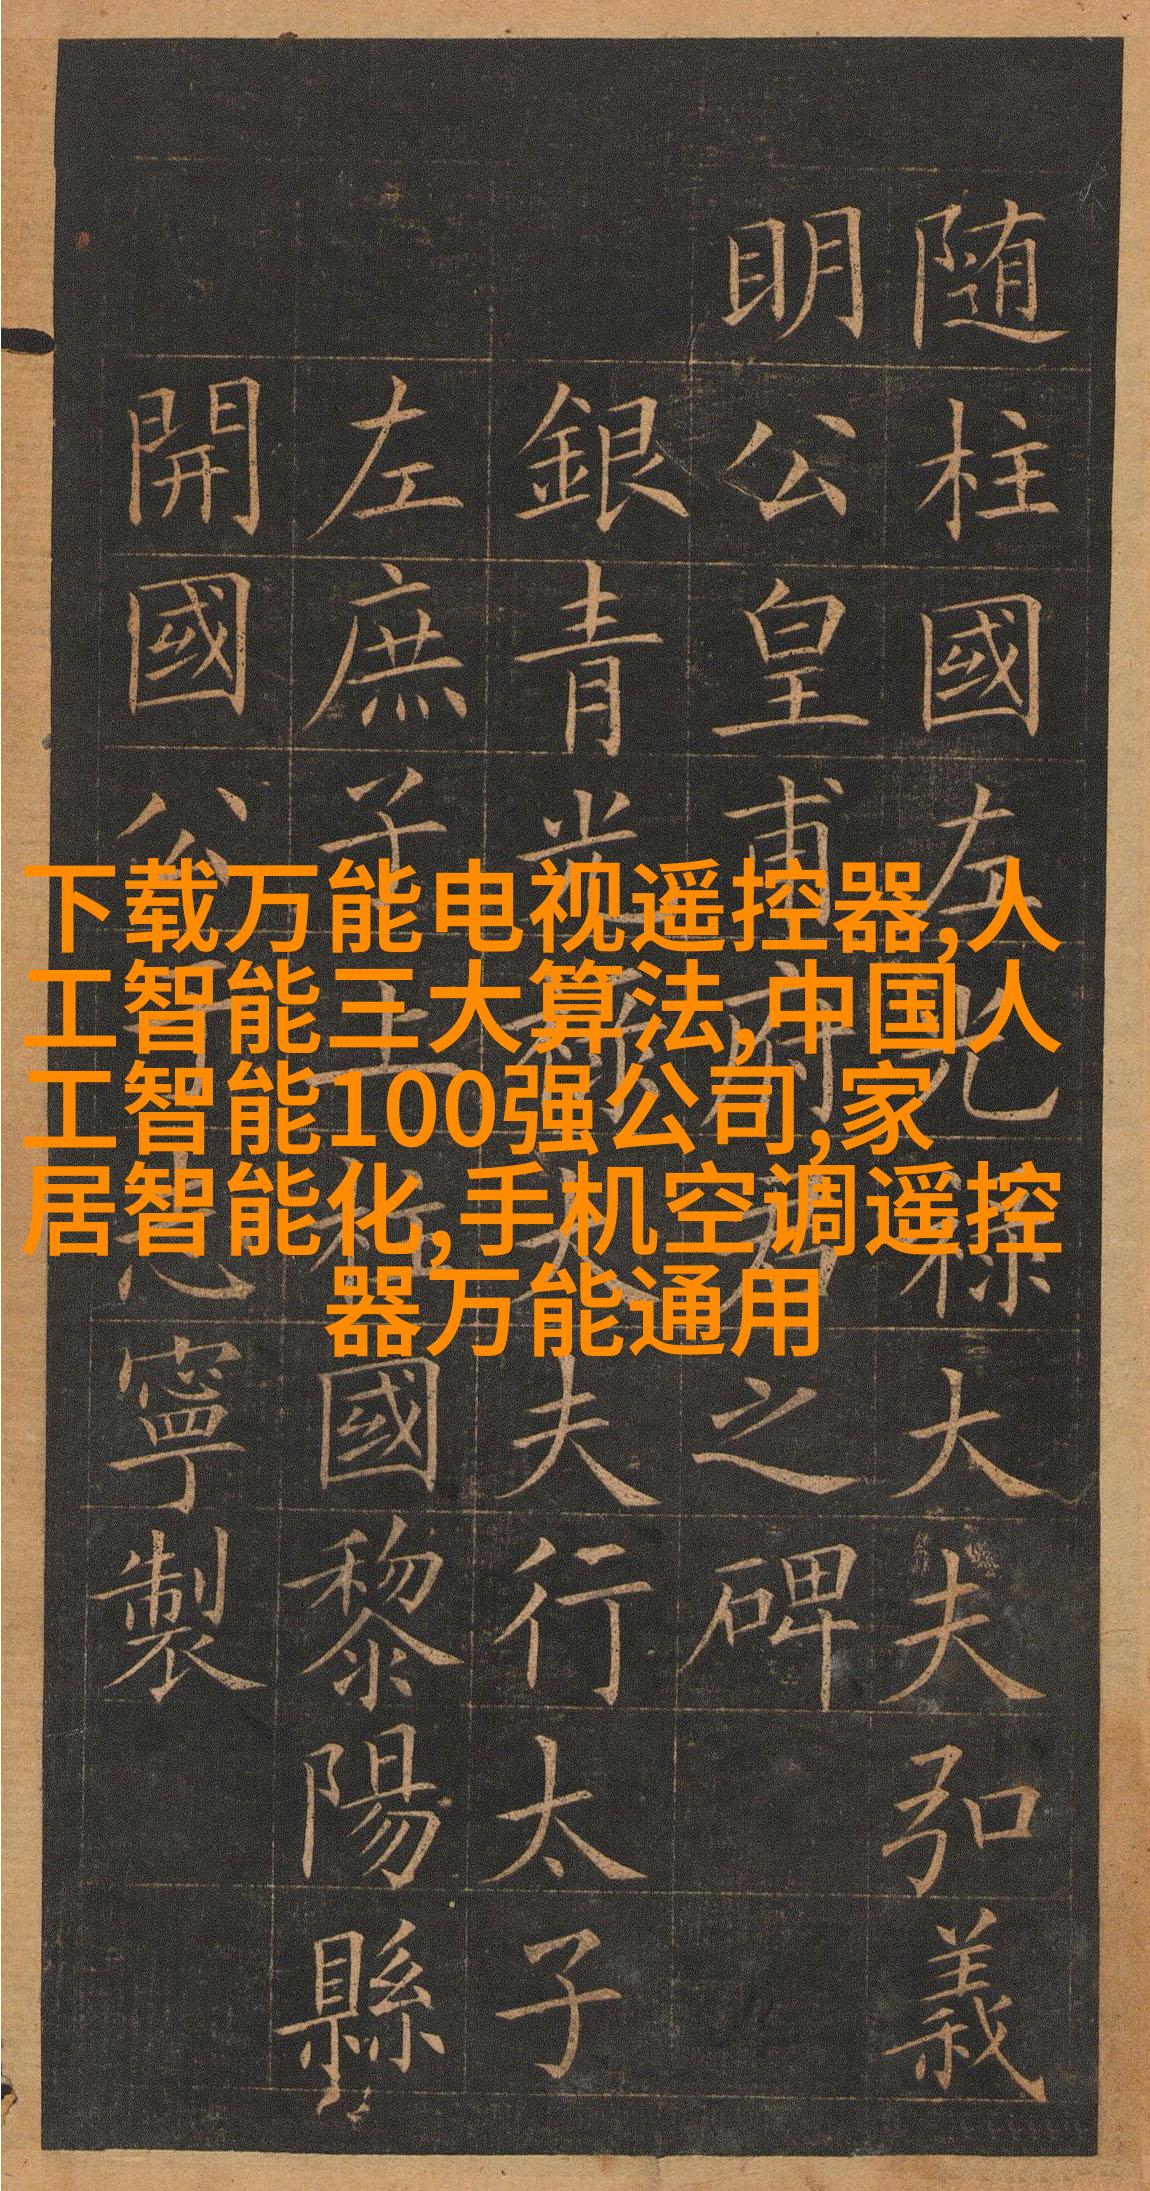 下载万能电视遥控器,人
工智能三大算法,中国人
工智能100强公司,家
居智能化,手机空调遥控
器万能通用
随柱國左光祿大夫弘義
明公皇甫府君之碑
銀青光祿大夫行太子
左庶子上柱國黎陽縣
開國公于志寧製